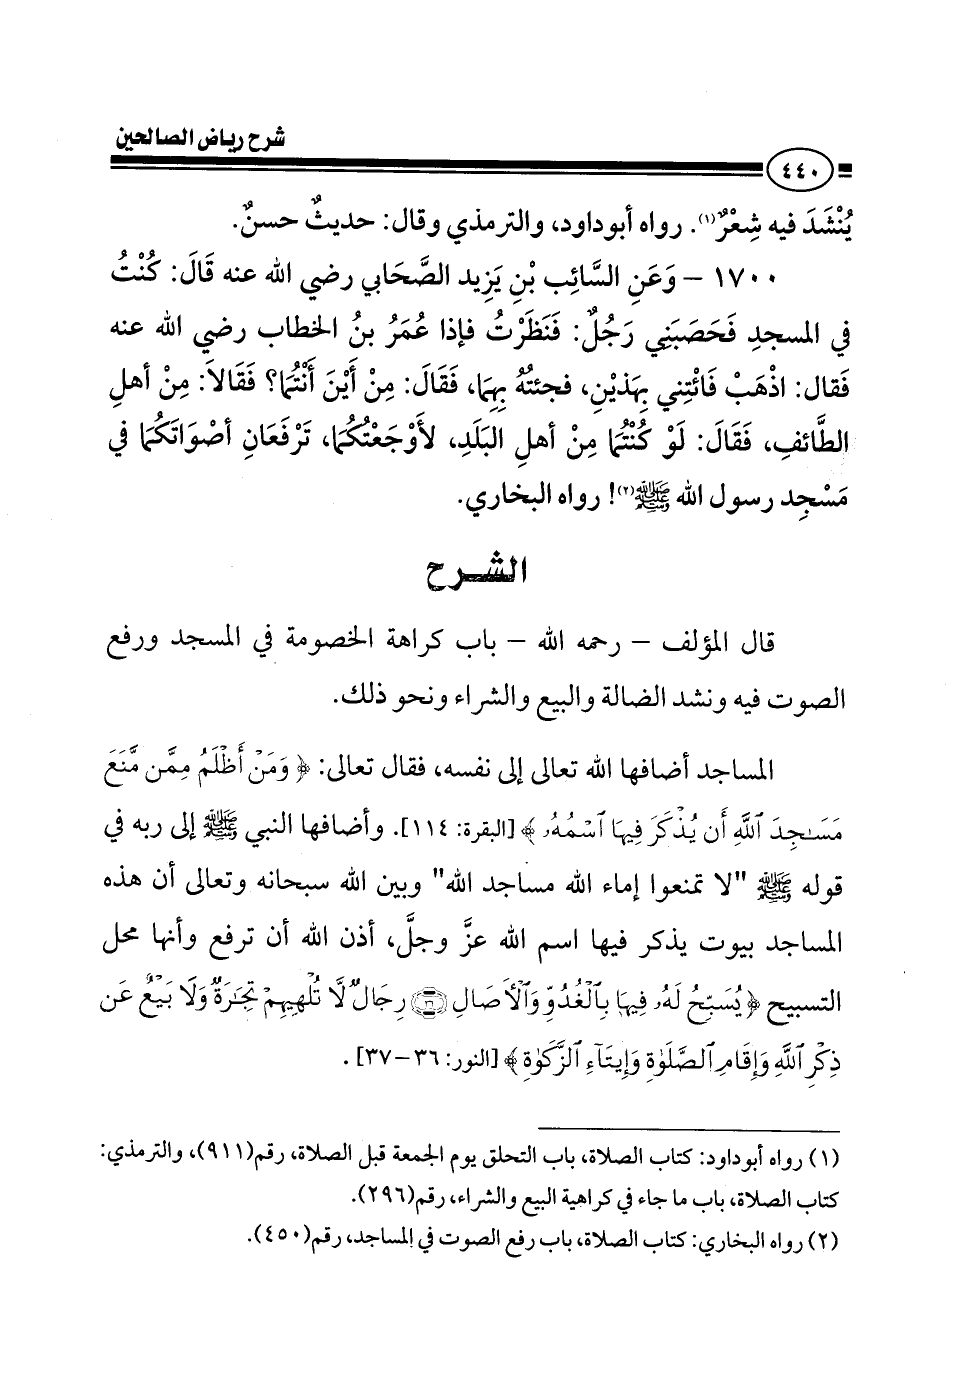 شرح رياض الصالحين
٤٤٠
يُنْشَدَ فيه شِعْرٌ(١). رواه أبوداود، والترمذي وقال: حديثٌ حسنٌ.
١٧٠٠ – وَعَنِ السَّائِب بْنِ يَزِيد الصَّحَابي رضي الله عنه قَالَ: كُنْتُ
في المسجدِ فَحَصَبَنِي رَجُلٌ: فَنَظَرْتُ فإذا عُمَرُ بنُ الخطاب رضي الله عنه
فَقال: اذْهَبْ فَائْتِني بِهَذيْنِ، فجئتُهُ بِهِمَا، فَقَالَ: مِنْ أَيْنَ أَنْتُمَا؟ فَقَالاَ: مِنْ أهلِ
الطَّائفِ، فَقَالَ: لَوْ كُنْتُمَا مِنْ أهلِ البَلَدِ، لأَوْجَعْتُكُمَا، تَرْفَعَانِ أصْوَاتَكُمَا في
مَسْجِد رسول الله ﷺ(٢)! رواه البخاري.
الشرح
قال المؤلف – رحمه الله – باب كراهة الخصومة في المسجد ورفع
الصوت فيه ونشد الضالة والبيع والشراء ونحو ذلك.
المساجد أضافها الله تعالى إلى نفسه، فقال تعالى: ﴿ وَمَنْ أَظْلَمُ مِمَّن مَّنَعَ
مَسَٰجِدَ ٱللَّهِ أَن يُذْكَرَ فِيهَا ٱسْمُهُۥ ﴾ [البقرة: ١١٤]. وأضافها النبي ﷺ إلى ربه في
قوله ﷺ "لا تمنعوا إماء الله مساجد الله" وبين الله سبحانه وتعالى أن هذه
المساجد بيوت يذكر فيها اسم الله عزَّ وجلَّ، أذن الله أن ترفع وأنها محل
التسبيح ﴿ يُسَبِّحُ لَهُۥ فِيهَا بِٱلْغُدُوِّ وَٱلْأَصَالِ ﴿٣٦﴾ رِجَالٌ لَّا تُلْهِيهِمْ تِجَٰرَةٌ وَلَا بَيْعٌ عَن
ذِكْرِ ٱللَّهِ وَإِقَامِ ٱلصَّلَوٰةِ وَإِيتَآءِ ٱلزَّكَوٰةِ ﴾ [النور: ٣٦–٣٧].
(١) رواه أبوداود: كتاب الصلاة، باب التحلق يوم الجمعة قبل الصلاة، رقم(٩١١)، والترمذي:
كتاب الصلاة، باب ما جاء في كراهية البيع والشراء، رقم(٢٩٦).
(٢) رواه البخاري: كتاب الصلاة، باب رفع الصوت في المساجد، رقم(٤٥٠).